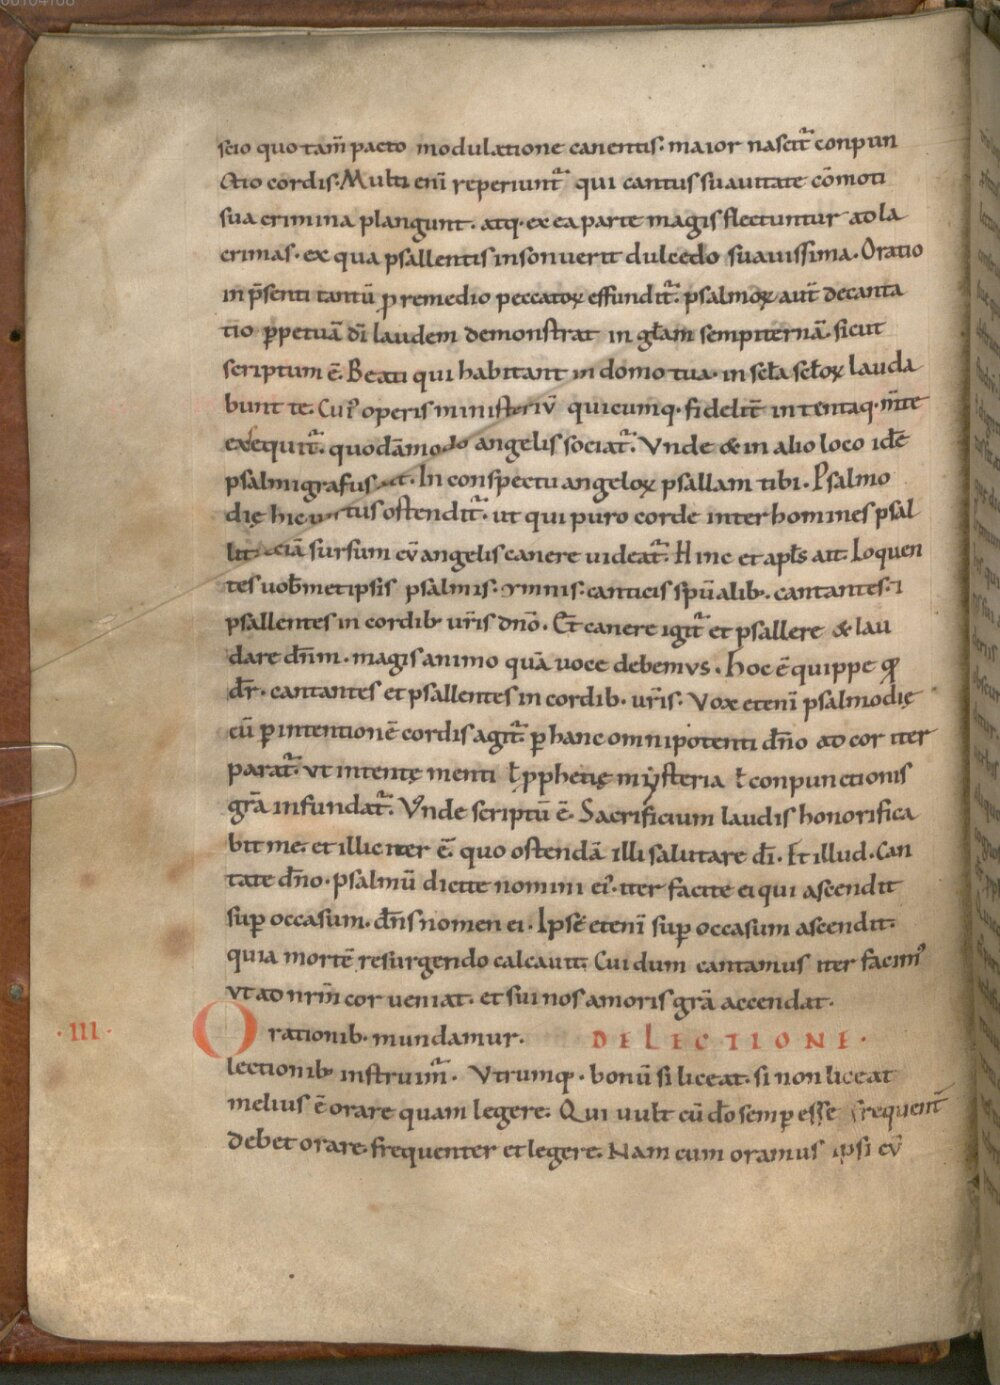 scio quo tam̄ pacto modulatione canentis. maior nascit̄ conpun
ctio cordis. Multi eni reperiunt̄ qui cantus suauitate cōmoti
sua crimina plangunt. atq; ex ea parte magis flectuntur ad la
crimas. ex qua psallentis insonuerit dulcedo suauissima. Oratio
in p̄senti tantū ꝓ remedio peccatoꝝ effundit̄. psalmoꝝ aut̄ decanta
tio ꝑpetuā dī laudem demonstrat in gl̄am sempiternā. sicut
scriptum ē. Beati qui habitant in domo tua. in scl̄a scl̄oꝝ lauda
bunt te. Cuiꝰ operis ministeriū quicumq; fidelit̄ intentaq; m̄te
exequit̄. quodāmodo angelis sociat̄. Vnde & in alio loco idē
psalmigrafus ait. In conspectu angeloꝝ psallam tibi. Psalmo
dię hic uirtus ostendit̄. ut qui puro corde inter homines psal
lit etiā sursum cū angelis canere uideat̄. Hinc et apl̄s ait. Loquen
tes uob̄metipsis psalmis. ymnis. canticis spūalib; cantantes. ⁊
psallentes in cordib; ur̄is dn̄o. Et canere igit̄ et psallere & lau
dare dn̄m. magis animo quā uoce debemus. hoc ē quippe qđ
dr̄. cantantes et psallentes in cordib; ur̄is. Vox etenī psalmodię
cū ꝑ intentionē cordis agit̄. ꝑ hanc omnipotenti dn̄o ad cor iter
parat̄. ut intentę menti ł ꝓphetię mẏsteria ł conpunctionis
grā infundat̄. Vnde scriptū ē. Sacrificium laudis honorifica
bit me. et illic iter ē. quo ostendā illi salutare dī. Et illud. Can
tate dn̄o. psalmū dicite nomini eiꝰ. iter facite ei qui ascendit
suꝑ occasum. dn̄s nomen ei. Ipse etenī suꝑ occasum ascendit.
quia mortē resurgendo calcauit. Cui dum cantamus iter facimꝰ
ut ad nr̄m cor ueniat. et sui nos amoris grā accendat.
.III. Orationib; mundamur. DE LECTIONE.
lectionib; instruim̄. Vtrumq; bonū si liceat. si non liceat
melius ē orare quam legere. Qui uult cū do semꝑ esse frequent̄
debet orare. frequenter et legere. Nam cum oramus ipsi cū